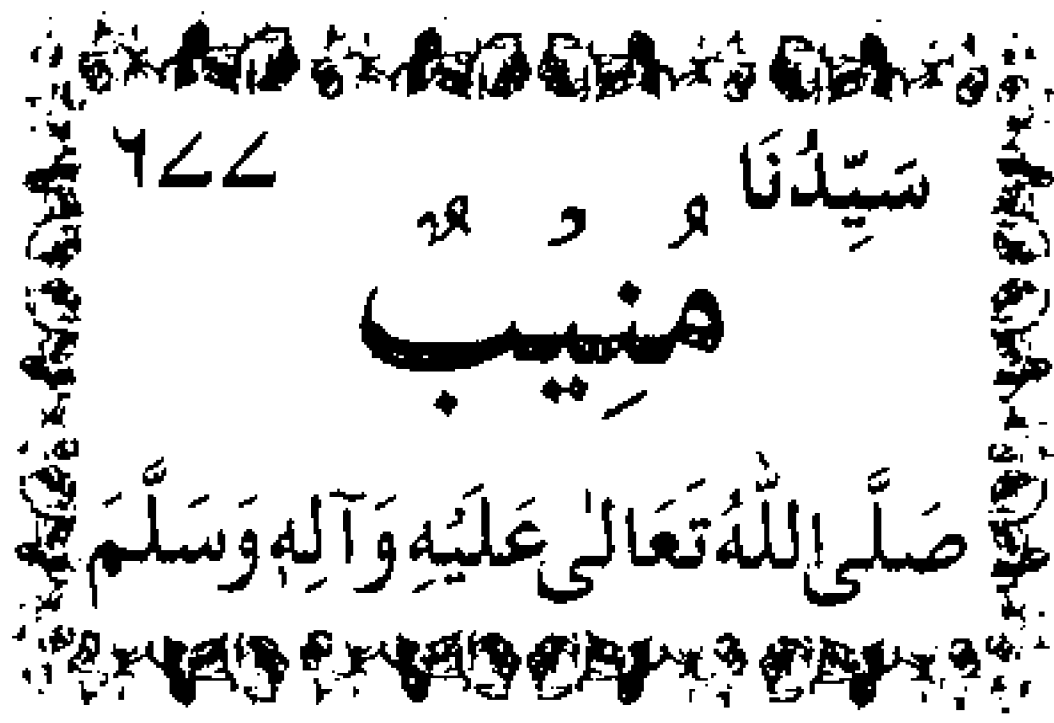 سَيِّدُنَا ٦٧٧
مُنِيْبٌ
صَلَّى اللّٰهُ تَعَالٰى عَلَيْهِ وَآلِهٖ وَسَلَّمَ